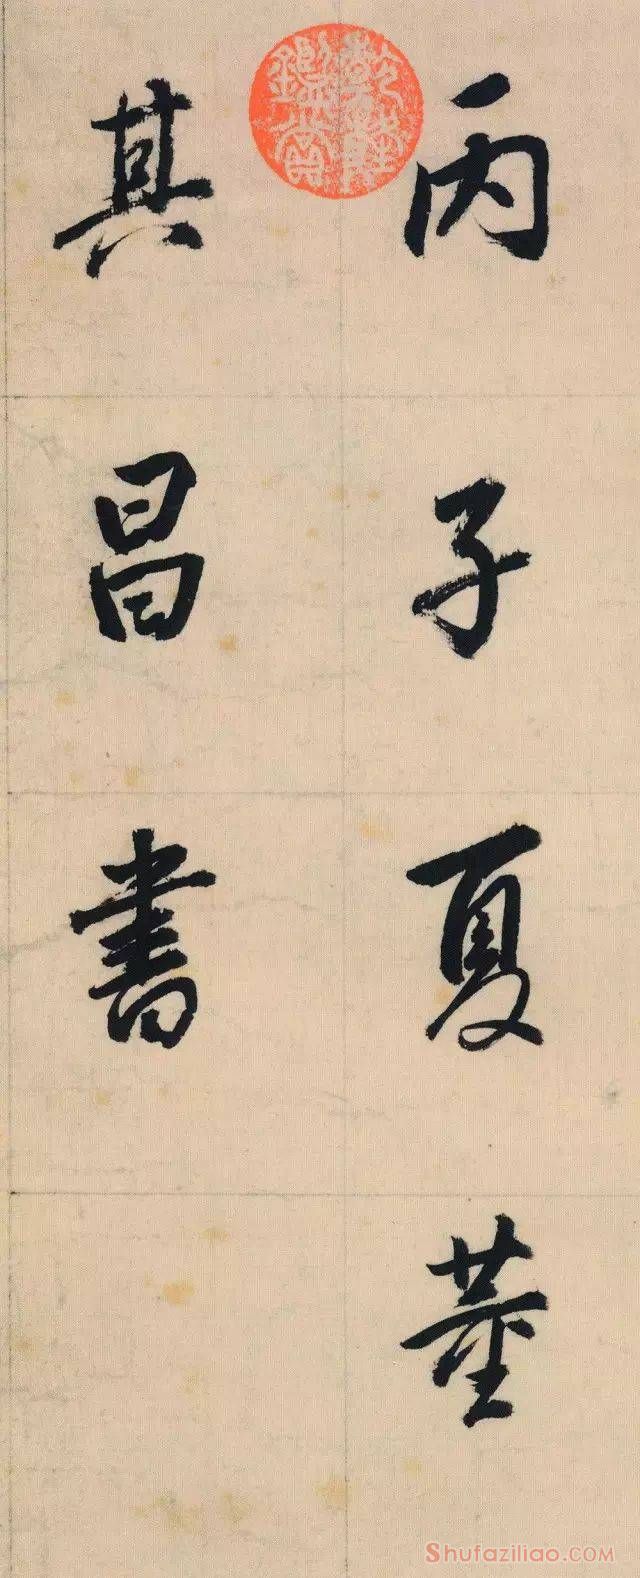 丙子夏董
其昌書
乾隆鑑賞
Shufaziliao.COM